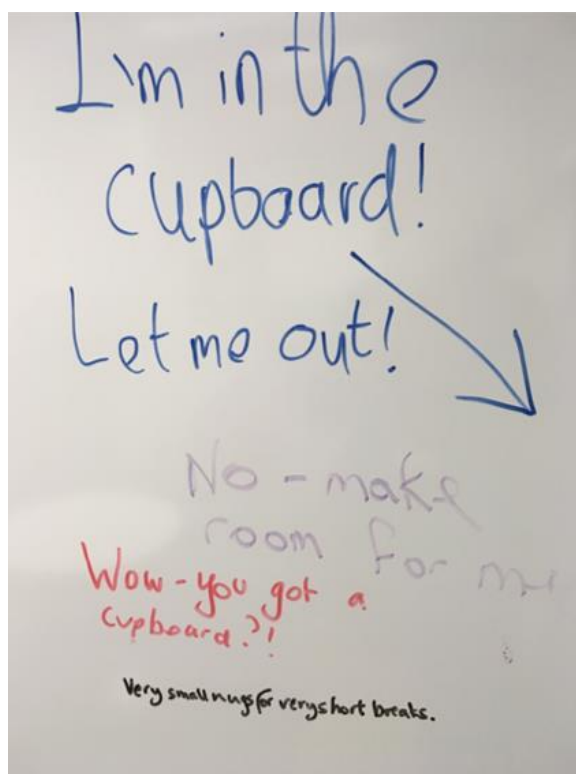 I'm in the
cupboard!
Let me out!
No - make
room for me
Wow - you got a
cupboard?!
Very small mugs for very short breaks.